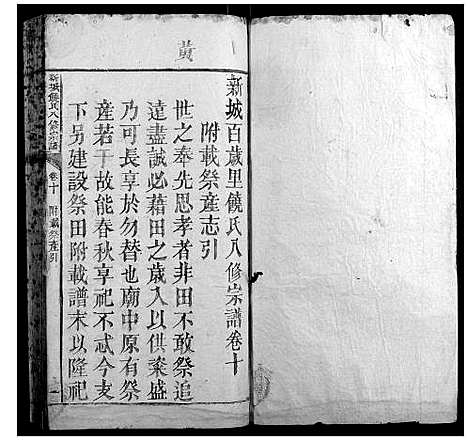 黄
新城百歲里饒氏八修宗譜卷十
附載祭產志引
世之奉先思孝者非田不敢祭追
遠盡誠必藉田之歲入以供粢盛
乃可長享於勿替也廟中原有祭
產若干故能春秋享祀不忒今支
下另建設祭田附載譜末以隆祀
新城饒氏八修宗譜
卷十
附載祭產引
一